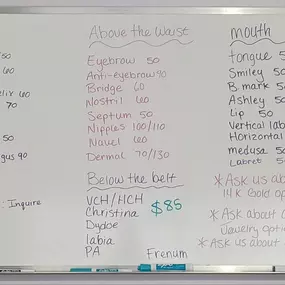 50
60
elix 60
70
50
gus 90
: Inquire
Above the Waist
Eyebrow 50
Anti-eyebrow 90
Bridge 60
Nostril 60
Septum 50
Nipples 100/110
Navel 60
Dermal 70/130
Below the belt
VCH/HCH
Christina
$85
Dydoe
labia
PA
Frenum
mouth
tongue 5
Smiley 50
B. mark 5
Ashley 50
Lip 50
Vertical lab
Horizontal
medusa 50
Labret 5
*Ask us ab
14k Gold op
*Ask about
Jewelry opti
*Ask us about